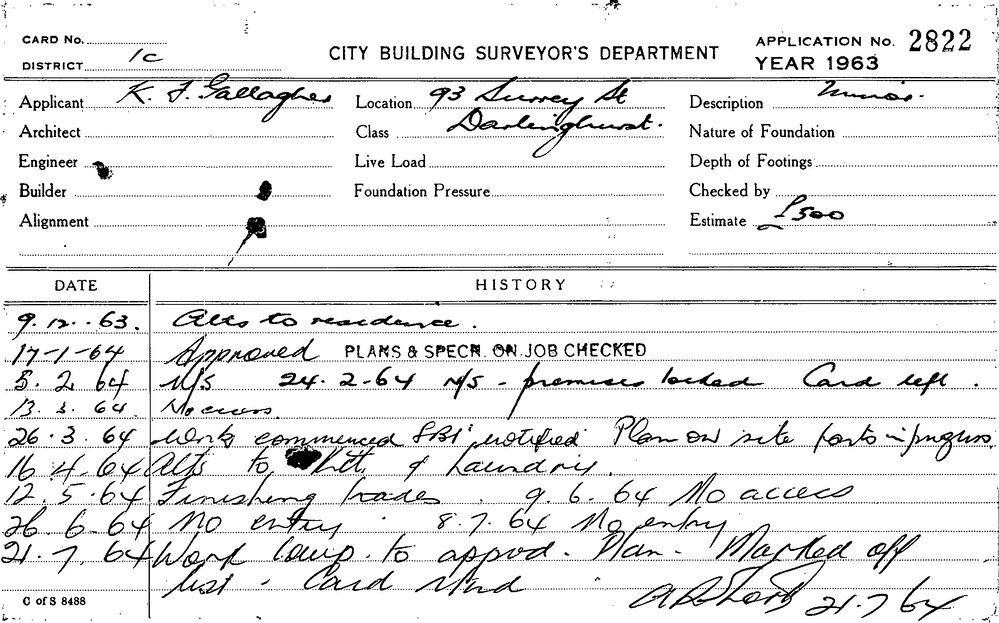 CARD No.
DISTRICT 1c
CITY BUILDING SURVEYOR'S DEPARTMENT
APPLICATION No. 2822
YEAR 1963
Applicant K. J. Gallagher
Location 93 Surrey St
Description Minor.
Architect
Class Darlinghurst.
Nature of Foundation
Engineer
Live Load
Depth of Footings
Builder
Foundation Pressure
Checked by
Alignment
Estimate £500
DATE HISTORY
9.12.63. Alts to residence.
17-1-64 Approved PLANS & SPECN. ON JOB CHECKED
5.2.64 N/S 24.2-64 N/S - premises locked Card left.
13.3.64. No access
26.3.64 Work commenced notified Plan on site
16.4.64 Alts to Kit. & Laundry.
12.5.64 Finishing trades. 9.6.64 No access
26.6.64 No entry. 8.7.64 No entry
21.7.64 Work comp. to approd. Plan. Marked off
list. Card
21.7.64
C of S 8488